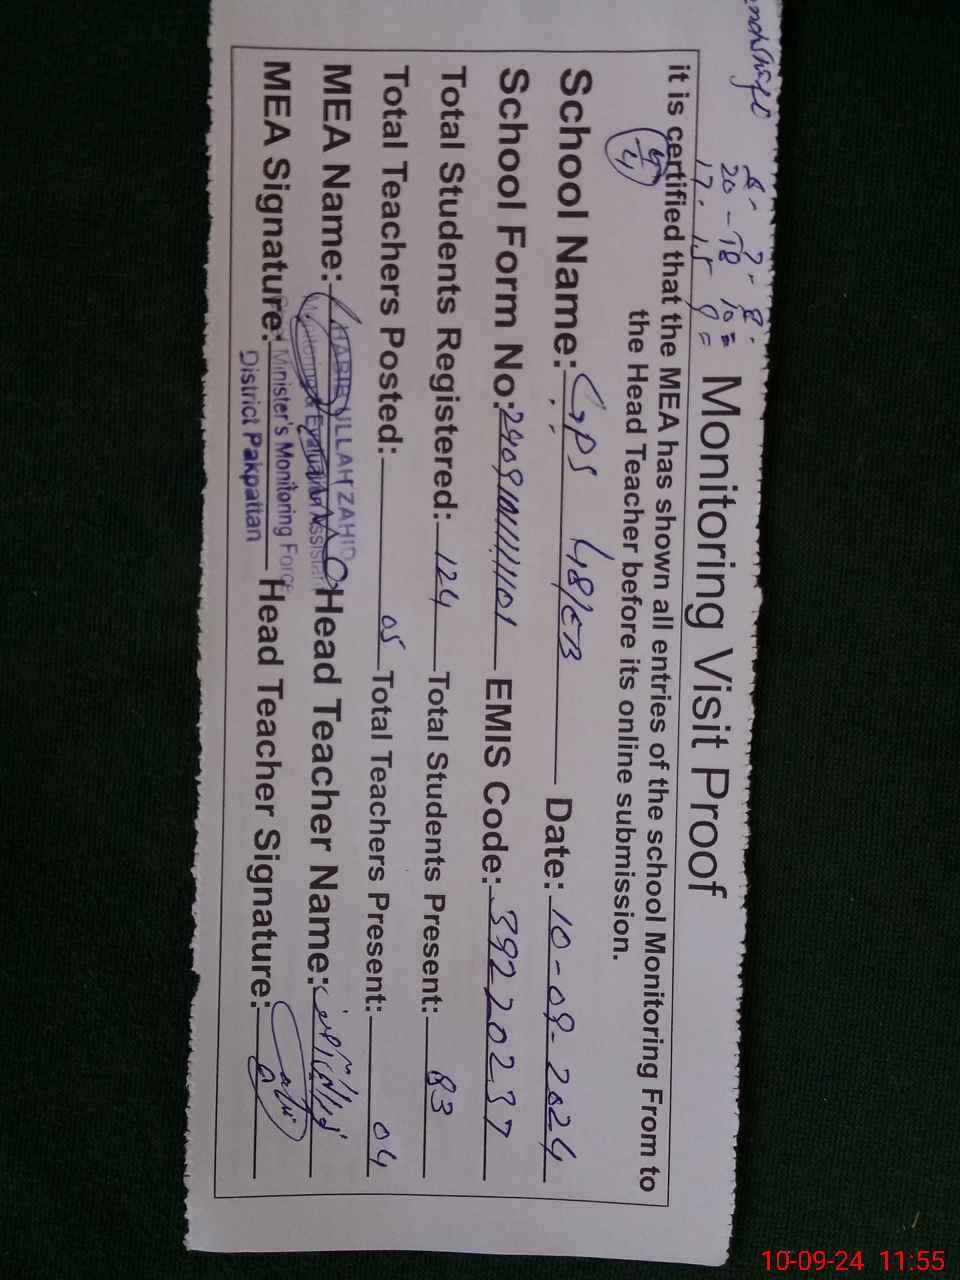 20 - 18 10 =
17 - 15 9 =
Monitoring Visit Proof
it is certified that the MEA has shown all entries of the school Monitoring From to
the Head Teacher before its online submission.
4
4
School Name: GPS 48/EB Date: 10-09-2024
School Form No: EMIS Code: 39220237
Total Students Registered: 124 Total Students Present: 83
Total Teachers Posted: 05 Total Teachers Present: 04
MEA Name: HABIB ULLAH ZAHID Head Teacher Name:
Monitoring & Evaluation Assistant
MEA Signature: Head Teacher Signature:
Chief Minister's Monitoring Force
District Pakpattan
10-09-24 11:55